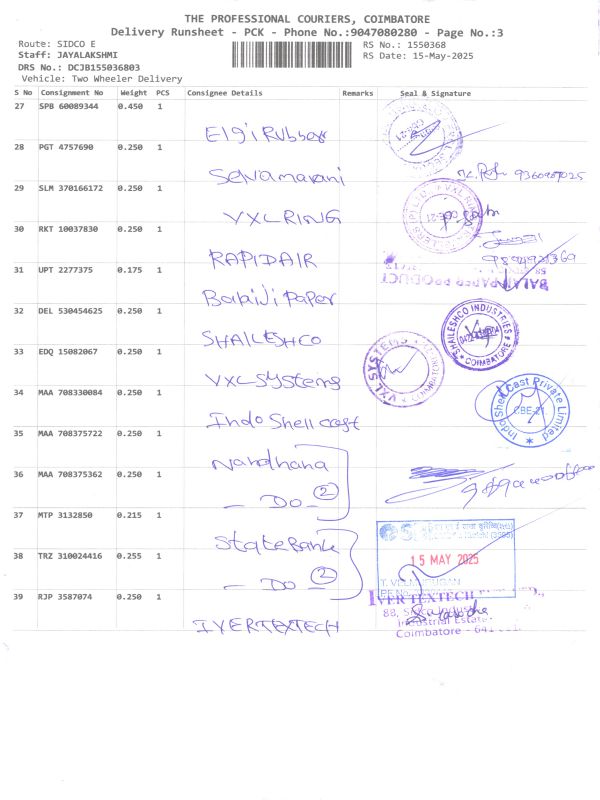 THE PROFESSIONAL COURIERS, COIMBATORE
Delivery Runsheet - PCK - Phone No.:9047080280 - Page No.:3
Route: SIDCO E
RS No.: 1550368
Staff: JAYALAKSHMI
RS Date: 15-May-2025
DRS No.: DCJB155036803
Vehicle: Two Wheeler Delivery
S No Consignment No Weight PCS Consignee Details Remarks Seal & Signature
27 SPB 60089344 0.450 1
Elgi Rubber
28 PGT 4757690 0.250 1
Selvamarani
29 SLM 370166172 0.250 1
VXLRING
30 RKT 10037830 0.250 1
RAPIDAIR
31 UPT 2277375 0.175 1
Balaji Paper
BALAJI PAPER PRODUCT
32 DEL 530454625 0.250 1
SHAILESHCO
SHAILESHCO INDUSTRIES
COIMBATORE
33 EDQ 15082067 0.250 1
VXLSystems
VXL SYSTEMS
COIMBATORE
34 MAA 708330084 0.250 1
Indo Shell cast
Indo Shell Cast Private Limited
CBE-21
35 MAA 708375722 0.250 1
Nandhana
36 MAA 708375362 0.250 1
- Do - 2
37 MTP 3132850 0.215 1
State Bank
SBI
15 MAY 2025
38 TRZ 310024416 0.255 1
- Do - 2
39 RJP 3587074 0.250 1
IVERTEXTECH
IVERTEXTECH
Industrial Estate
Coimbatore - 641